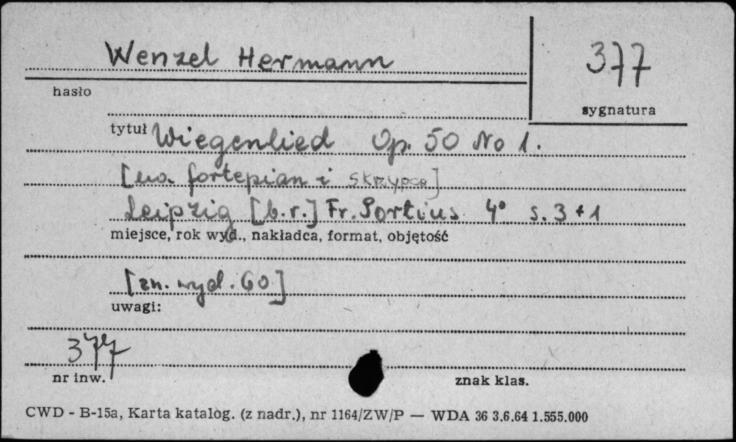 Wenzel Hermann
377
hasło
sygnatura
tytuł Wiegenlied Op. 50 No 1.
[na fortepian i skrzypce]
Leipzig [b.r.] Fr. Portius 4° s. 3+1
miejsce, rok wyd., nakładca, format, objętość
[zn. wyd. 60]
uwagi:
377
nr inw.
znak klas.
CWD - B-15a, Karta katalog. (z nadr.), nr 1164/ZW/P — WDA 36 3.6.64 1.555.000